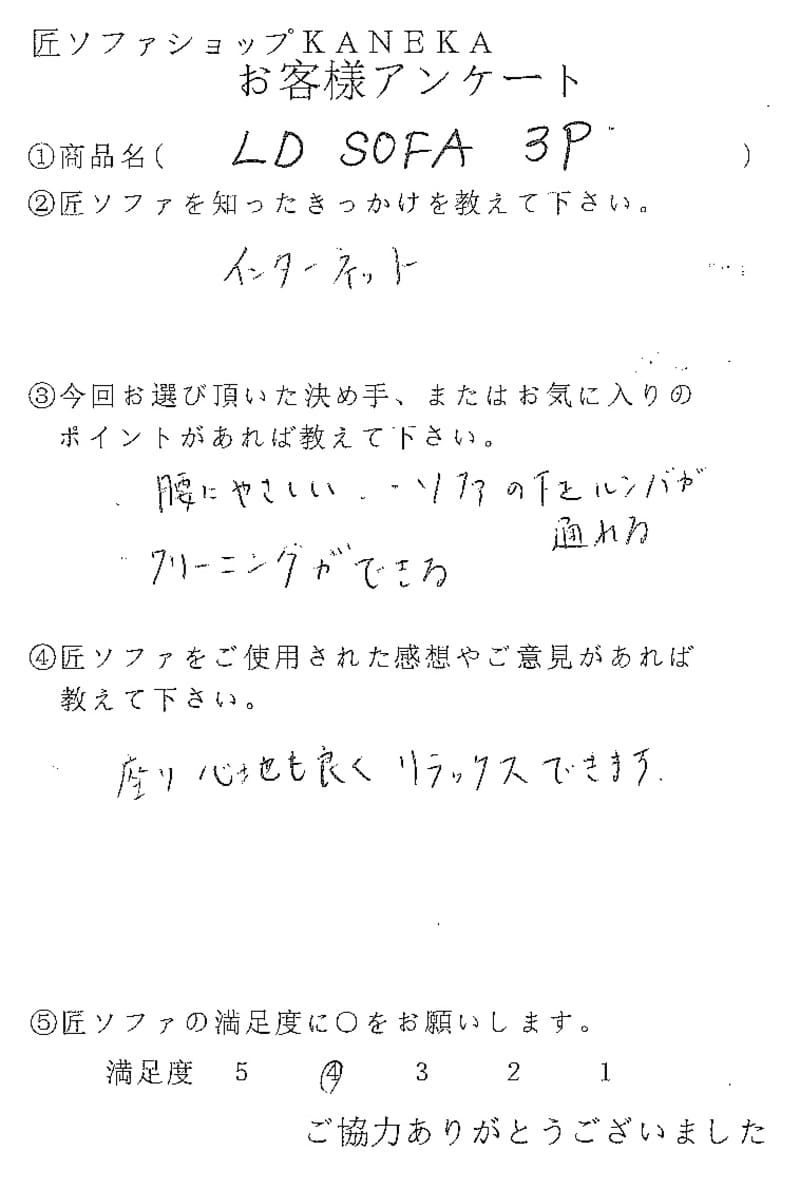 匠ソファショップKANEKA
お客様アンケート
①商品名( LD SOFA 3P )
②匠ソファを知ったきっかけを教えて下さい。
インターネット
③今回お選び頂いた決め手、またはお気に入りの
ポイントがあれば教えて下さい。
・腰にやさしい ・ソファの下をルンバが
通れる
・クリーニングができる
④匠ソファをご使用された感想やご意見があれば
教えて下さい。
座り心地も良くリラックスできます。
⑤匠ソファの満足度に○をお願いします。
満足度 5 ④ 3 2 1
ご協力ありがとうございました